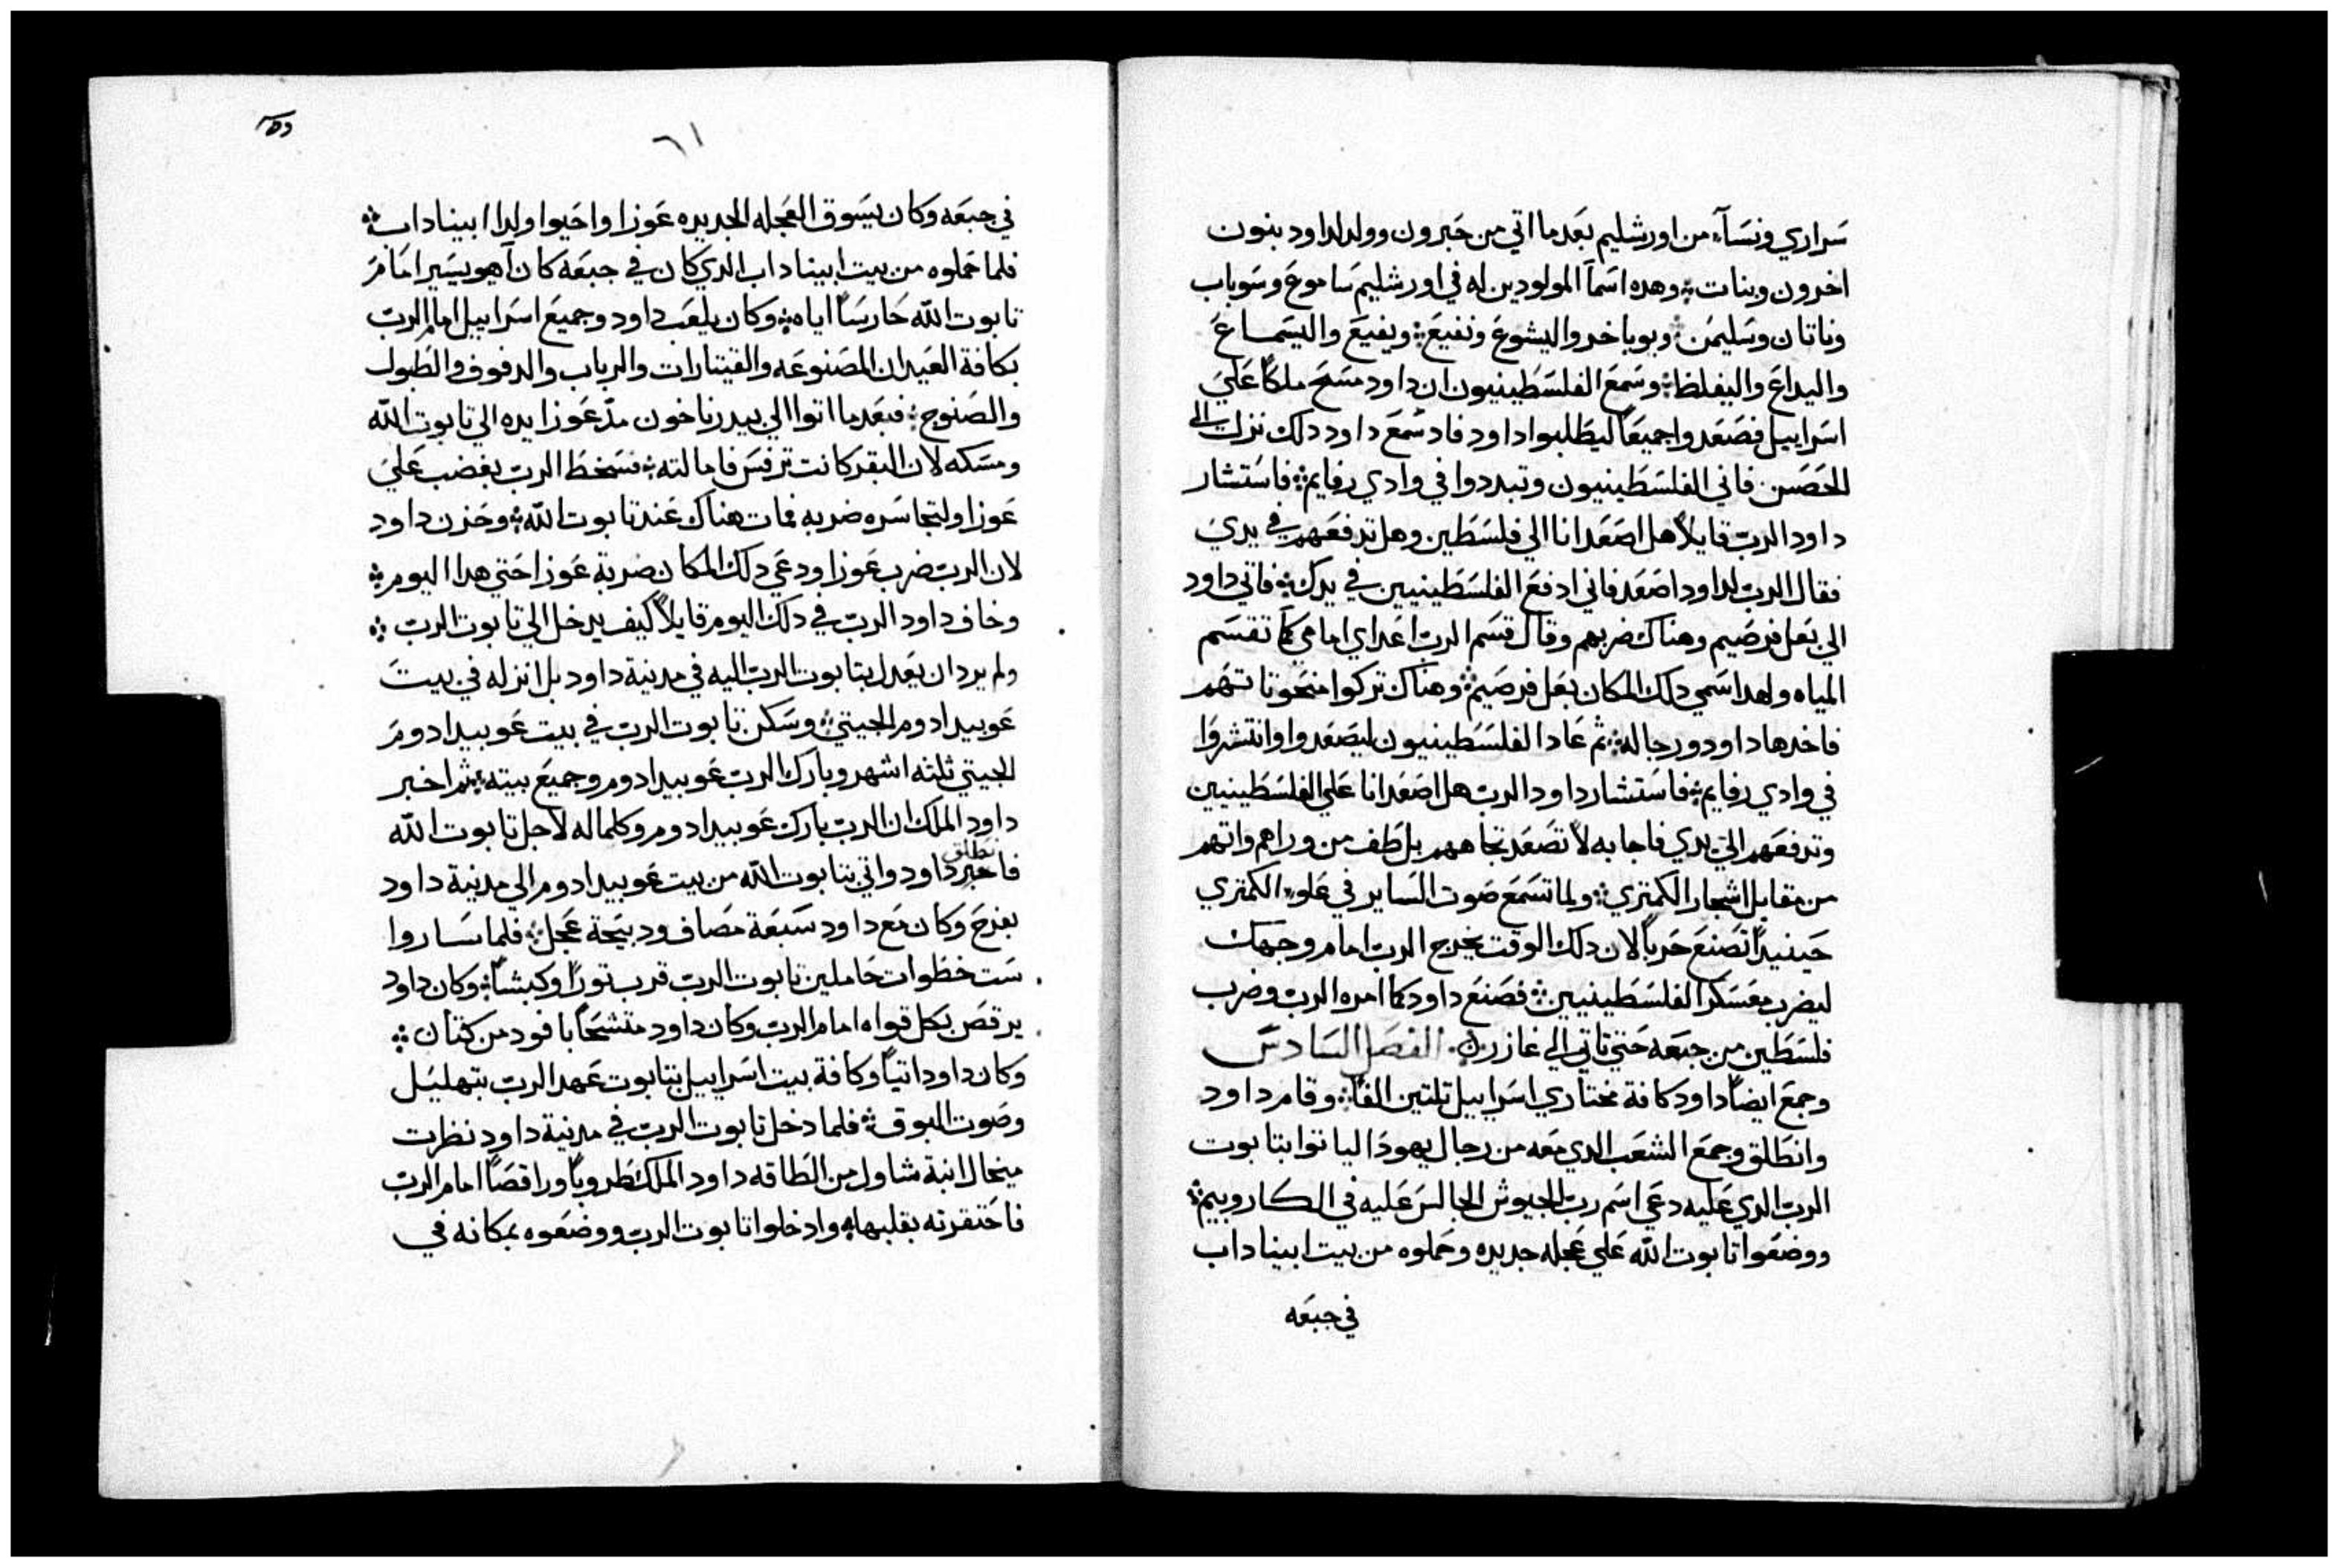 سراري ونسآء من اورشليم بعدما اتي من حبرون وولد لداود بنون
اخرون وبنات ۞ وهده اسمآ المولودين له في اورشليم ساموع وسوباب
وناتان وسليمن ۞ ويوباخر واليشوع ونفيع ۞ ويفيع واليسماع
واليداع واليفلط ۞ وسمع الفلسطينيون ان داود مسح ملكاً علي
اسراييل فصعدوا جميعاً ليطلبوا داود فاد سمع داود دلك نزل الي
الحصن فاتي الفلسطينيون وتبددوا في وادي رفايم ۞ فاستشار
داود الرب قايلاً هل اصعد انا الي فلسطين وهل تدفعهم في يدي
فقال الرب لداود اصعد فاني ادفع الفلسطينيين في يدك ۞ فاتي داود
الي بعل فرصيم وهناك ضربهم وقال قسم الرب اعداي امامي كما تقسم
المياه ولهدا سمي دلك المكان بعل فرصيم ۞ وهناك تركوا منحوتاتهم
فاخدها داود ورجاله ۞ ثم عادا الفلسطينيون ليصعدوا وانتشروا
في وادي رفايم ۞ فاستشار داود الرب هل اصعد انا علي الفلسطينيين
وتدفعهم الي يدي فاجابه لا تصعد تجاههم بل طف من وراهم واتهم
من مقابل اشجار الكمتري ۞ ولما تسمع صوت الساير في علوء الكمتري
حينيداً تصنع حرباً لان دلك الوقت يخرج الرب امام وجهك
ليضرب معسكر الفلسطينيين ۞ فصنع داود كما امره الرب وضرب
فلسطين من جبعه حتي تاتي الي غازر ۞ الفصل السادس
وجمع ايضاً داود كافة مختاري اسراييل تلتين الفاً ۞ وقام داود
وانطلق وجمع الشعب الدي معه من رجال يهودا لياتوا بتابوت
الرب الدي عليه دعي اسم رب الجيوش الجالس عليه في الكاروبيم ۞
ووضعوا تابوت الله علي عجله جديده وحملوه من بيت ابيناداب
في جبعه
٦١
في جبعه وكان يسوق العجله الجديده عوزا واحيوا ولدا ابيناداب ۞
فلما حملوه من بيت ابيناداب الدي كان في جبعه كان آهيو يسير امام
تابوت الله حارساً اياه ۞ وكان يلعب داود وجميع اسراييل امام الرب
بكافة العيدان المصنوعه والقيتارات والرباب والدفوف والطبول
والصنوج ۞ فبعدما اتوا الي بيدر ناخون مدّ عوزا يده الي تابوت الله
ومسكه لان البقر كانت ترفس فامالته ۞ فسخط الرب بغضب علي
عوزا ولتجاسره ضربه فمات هناك عند تابوت الله ۞ وحزن داود
لان الرب ضرب عوزا ودعي دلك المكان ضربة عوزا حتي هدا اليوم ۞
وخاف داود الرب في دلك اليوم قايلاً كيف يدخل الي تابوت الرب ۞
ولم يرد ان يعدل بتابوت الرب اليه في مدينة داود بل انزله في بيت
عوبيدادوم الجيتي ۞ وسكن تابوت الرب في بيت عوبيدادوم
الجيتي ثلثه اشهر وبارك الرب عوبيدادوم وجميع بيته ۞ ثم اخبر
داود الملك ان الرب بارك عوبيدادوم وكلما له لاجل تابوت الله
داود واتي بتابوت الله من بيت عوبيدادوم الي مدينة داود
بفرح وكان مع داود سبعة مصاف ودبيحة عجل ۞ فلما ساروا
ست خطوات حاملين تابوت الرب قرب توراً وكبشاً ۞ وكان داود
يرقص بكل قواه امام الرب وكان داود متشحاً بافود من كتان ۞
وكان داود اتياً وكافة بيت اسراييل بتابوت عهد الرب بتهليل
وصوت البوق ۞ فلما دخل تابوت الرب في مدينة داود نظرت
ميخال ابنة شاول من الطاقه داود الملك طروباً وراقصاً امام الرب
فاحتقرته بقلبها ۞ وادخلوا تابوت الرب ووضعوه بمكانه في